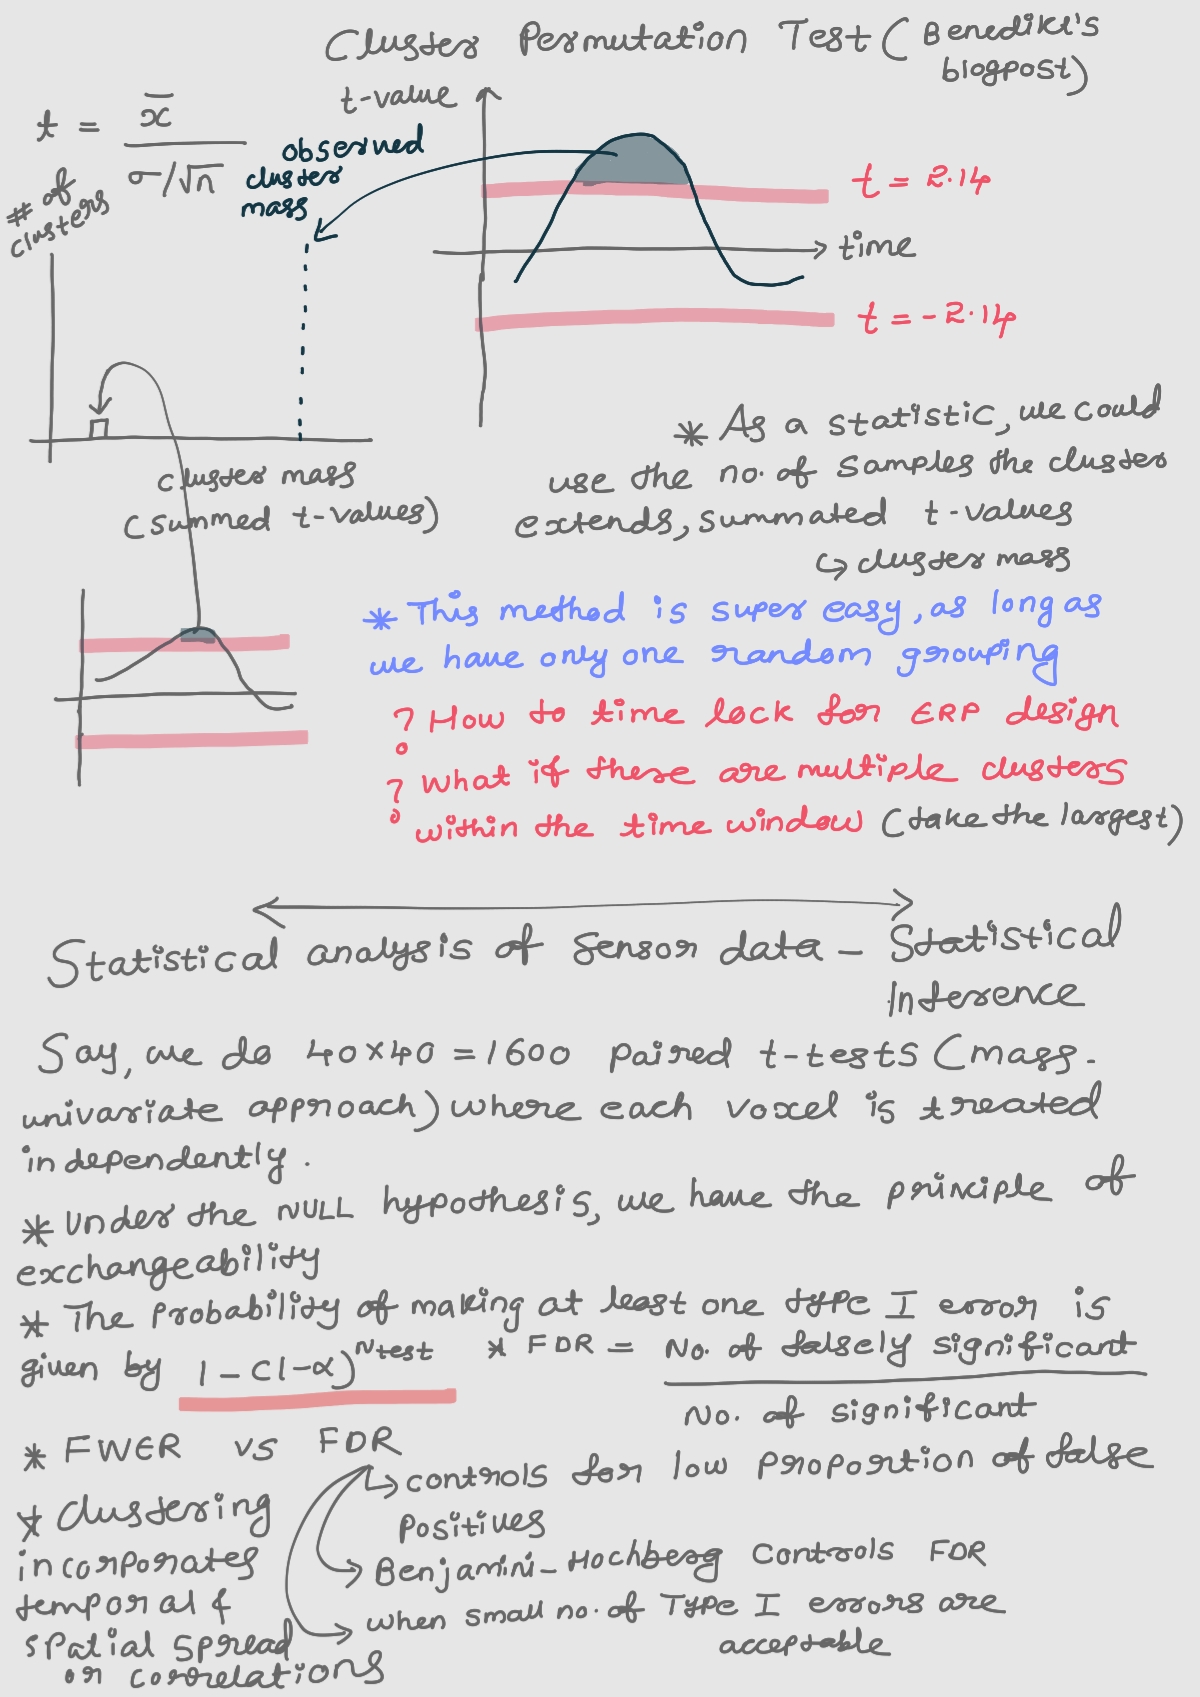 Cluster Permutation Test (Benedikt's
blogpost)
t = x̄
σ/√n
t-value
observed
cluster
mass
# of
clusters
t = 2.14
time
t = -2.14
cluster mass
(summed t-values)
* As a statistic, we could
use the no. of samples the cluster
extends, summated t-values
↳ cluster mass
* This method is super easy, as long as
we have only one random grouping
? How to time lock for ERP design
? What if there are multiple clusters
within the time window (take the largest)
Statistical analysis of sensor data - Statistical
Inference
Say, we do 40×40 = 1600 paired t-tests (mass-
univariate approach) where each voxel is treated
independently.
* Under the NULL hypothesis, we have the principle of
exchangeability
* The probability of making at least one type I error is
given by 1-(1-α)^Ntest * FDR = No. of falsely significant
No. of significant
* FWER vs FDR
↳ controls for low proportion of false
positives
* Clustering
incorporates
temporal &
spatial spread
or correlations
Benjamini-Hochberg controls FDR
when small no. of Type I errors are
acceptable